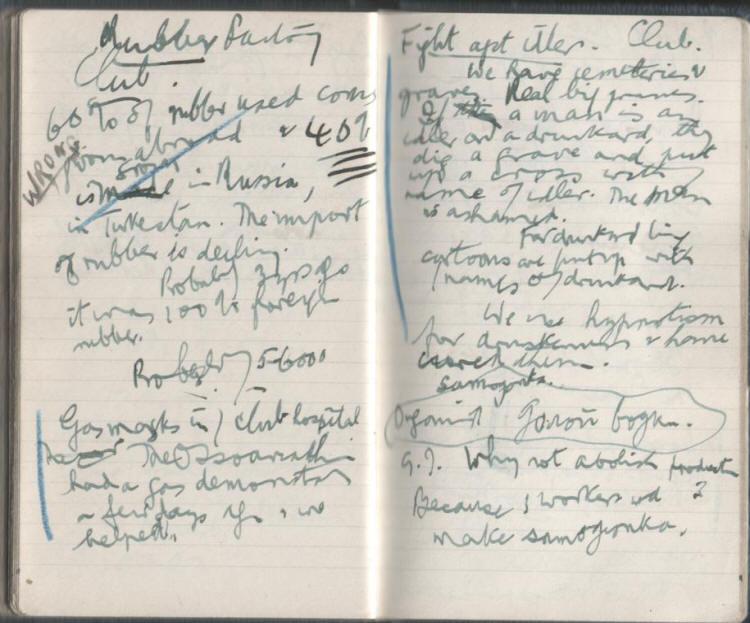 Rubber Factory
Club.
60% of rubber used comes
from abroad & 40%
WRONG
is grown in Russia,
in Turkestan. The import
of rubber is declining.
Probably 3 yrs ago
it was 100% foreign
rubber.
Probably 56000
Gas masks in / Club hospital
The Ossoaviakhim
had a gas demonstration
a few days ago & we
helped.
Fight agst idlers. Club.
We have cemeteries &
graves. Real big graves.
If a man is an
idler or a drunkard, they
dig a grave and put
up a cross with
name of idler. The man
is ashamed.
For drunkards big
cartoons are put up with
/ names of / drunkard.
We use hypnotism
for drunkenness & home
cures them.
samogonka.
G.J. Why not abolish production
?
Because / workers wd
make samogonka.